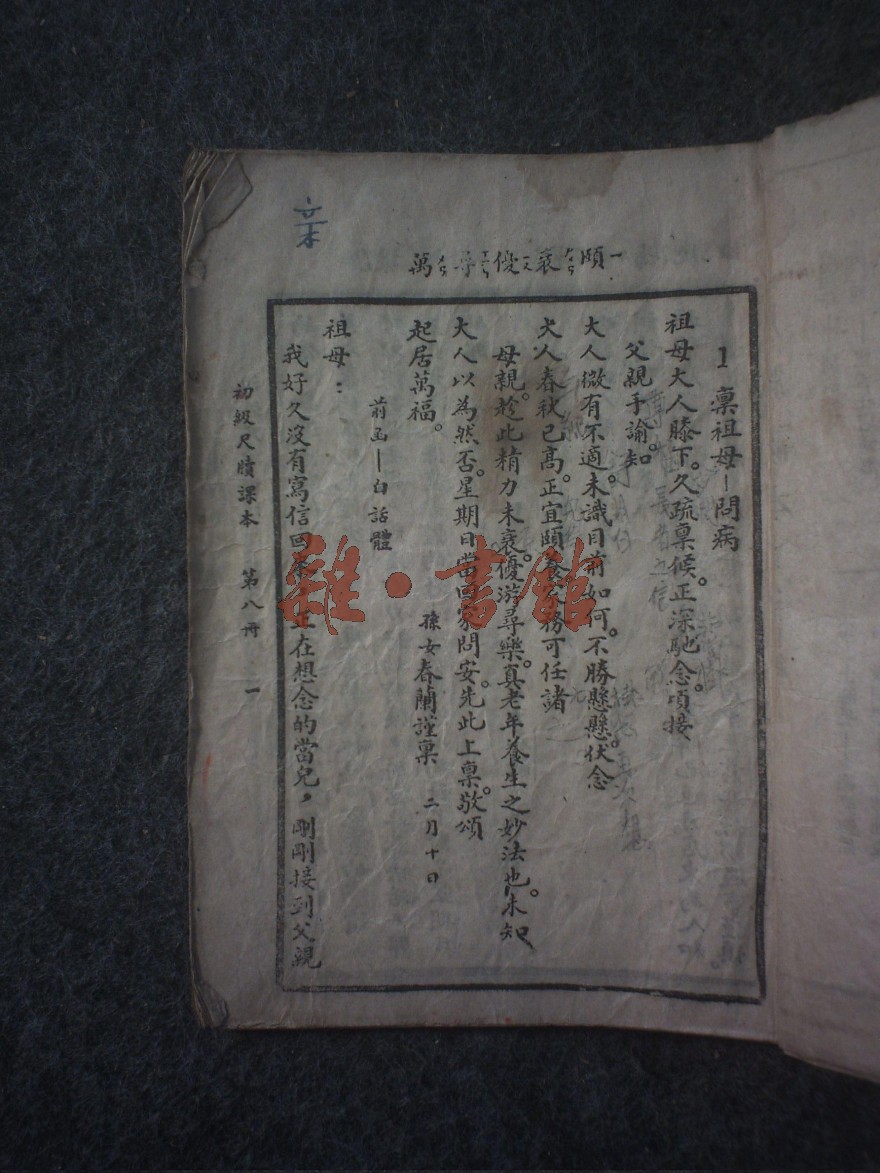 1 稟祖母—問病
祖母大人膝下。久疏稟候。正深馳念。頃接
父親手諭。知
大人微有不適。未識目前如何。不勝懸懸。伏念
大人春秋已高。正宜頤養。家務可任諸
母親。趁此精力未衰。優游尋樂。真老年養生之妙法也。未知
大人以為然否。星期日當回家問安。先此上稟。敬頌
起居萬福。
孫女春蘭謹稟 二月十日
前函—白話體
祖母：
我好久沒有寫信回來，正在想念的當兒，剛剛接到父親
初級尺牘課本 第八冊 一
頤 衰 優 尋 萬
雜·書館